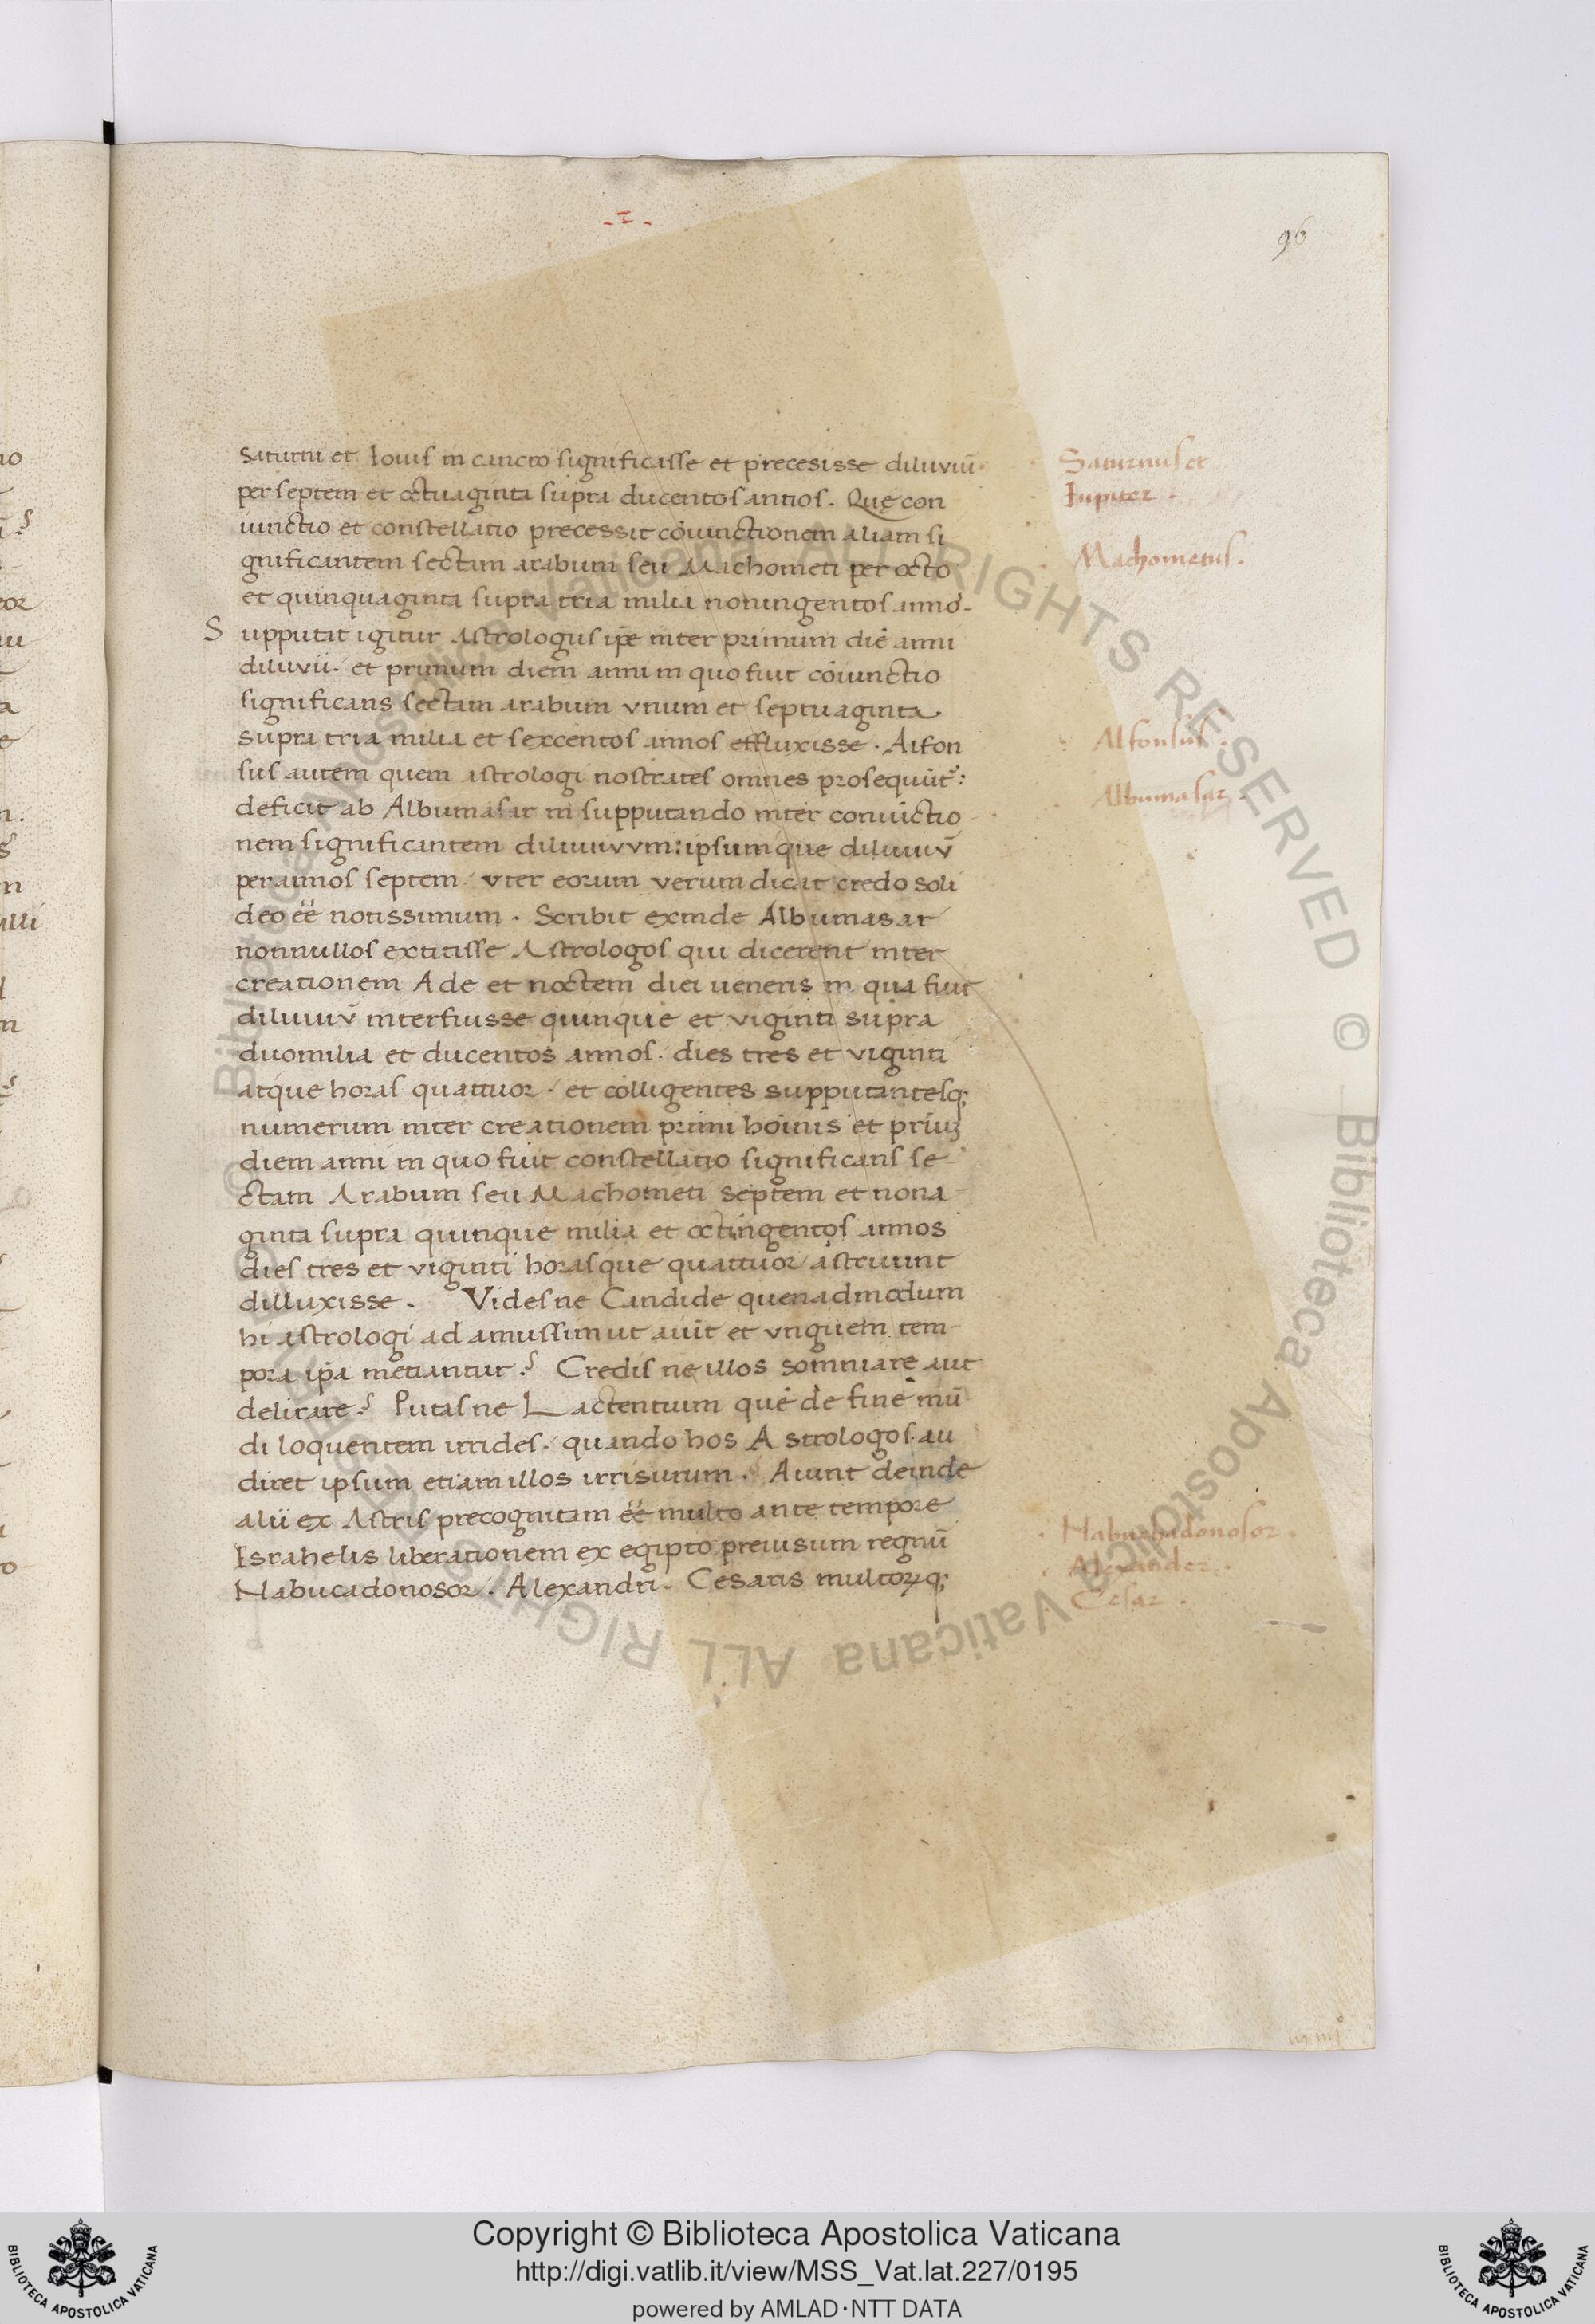 - I -
96
Saturni et Iouis in cancro significasse et precesisse diluuiū
per septem et octuaginta supra ducentos annos. Quę con
iunctio et constellatio precessit cōiunctionem aliam si
gnificantem sectam arabum seu Machometi per octo
et quinquaginta supra tria milia noningentos anno.
Supputat igitur Astrologus ip̄e inter primum diē anni
diluuii. et primum diem anni in quo fuit cōiunctio
significans sectam arabum vnum et septuaginta
supra tria milia et sexcentos annos effluxisse. Alfon
sus autem quem astrologi nostrates omnes prosequūt̄:
deficit ab Albumasar in supputando inter coniūctio
nem significantem diluuiuvm: ipsumque diluuiuv̄
per annos septem. vter eorum verum dicat credo soli
deo eē notissimum. Scribit exinde Albumasar
nonnullos extitisse Astrologos qui dicerent inter
creationem Ade et noctem diei ueneris in qua fuit
diluuiuv̄ interfuisse quinque et viginti supra
duomilia et ducentos annos. dies tres et viginti
atque horas quattuor. et colligentes supputantesq;
numerum inter creationem primi hoīnis et prīuꝫ
diem anni in quo fuit constellatio significans se-
ctam Arabum seu Machometi septem et nona-
ginta supra quinque milia et octingentos annos
dies tres et viginti horasque quattuor astruunt
dilluxisse. Videsne Candide quenadmodum
hi astrologi ad amussim ut aiūt et vnguem tem-
pora ip̄a metiantur? Credis ne illos somniare aut
delirare? Putasne Lactentium quē de fine mū
di loquentem irrides. quando hos Astrologos au
diret ipsum etiam illos irrisurum. Aiunt deinde
alii ex Astris precognitam eē multo ante tempore
Israhelis liberationem ex egipto preuisum regnū
Nabucadonosor. Alexandri. Cesaris multoꝝq;
Saturnus et
Iupiter.
Machometus.
Alfonsus.
Albumasar.
Nabuchadonosor.
Alexander.
Cesar.
Biblioteca Apostolica Vaticana ALL RIGHTS RESERVED ©
Copyright © Biblioteca Apostolica Vaticana
http://digi.vatlib.it/view/MSS_Vat.lat.227/0195
powered by AMLAD·NTT DATA
BIBLIOTECA APOSTOLICA VATICANA
BIBLIOTECA APOSTOLICA VATICANA